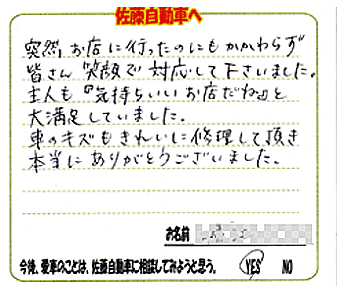 佐藤自動車へ
突然、お店に行ったのにもかかわらず
皆さん笑顔で対応して下さいました。
主人も『気持ちいいお店だね』と
大満足していました。
車のキズもきれいに修理して頂き
本当にありがとうございました。
お名前
今後、愛車のことは、佐藤自動車に相談してみようと思う。 YES NO